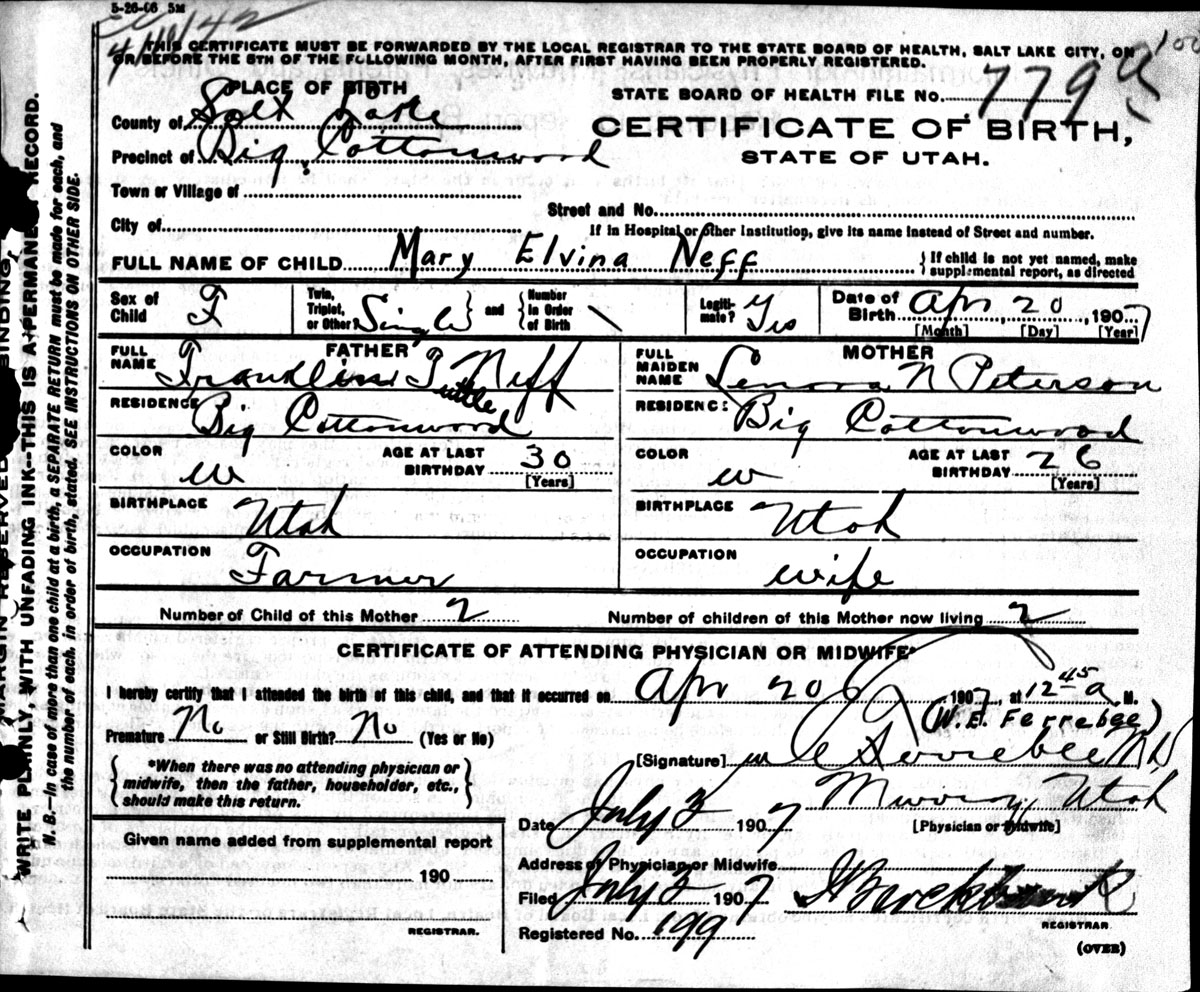 5-26-06 5M
4/10/42
100
THIS CERTIFICATE MUST BE FORWARDED BY THE LOCAL REGISTRAR TO THE STATE BOARD OF HEALTH, SALT LAKE CITY, ON
OR BEFORE THE 5TH OF THE FOLLOWING MONTH, AFTER FIRST HAVING BEEN PROPERLY REGISTERED.
PLACE OF BIRTH
STATE BOARD OF HEALTH FILE No. 779
County of Salt Lake
CERTIFICATE OF BIRTH,
Precinct of Big Cottonwood
STATE OF UTAH.
Town or Village of
Street and No.
City of
If in Hospital or other Institution, give its name instead of Street and number.
FULL NAME OF CHILD Mary Elvina Neff
If child is not yet named, make
supplemental report, as directed
Sex of Child F
Twin, Triplet, or Other? Single and Number in Order of Birth
Legiti-mate? Yes
Date of Birth Apr 20, 1907
[Month] [Day] [Year]
FATHER
FULL NAME Franklin T Neff
Tuttle
RESIDENCE Big Cottonwood
COLOR w AGE AT LAST BIRTHDAY 30
[Years]
BIRTHPLACE Utah
OCCUPATION Farmer
MOTHER
FULL MAIDEN NAME Lenora N Peterson
RESIDENCE Big Cottonwood
COLOR w AGE AT LAST BIRTHDAY 26
[Years]
BIRTHPLACE Utah
OCCUPATION wife
Number of Child of this Mother 2 Number of children of this Mother now living 2
CERTIFICATE OF ATTENDING PHYSICIAN OR MIDWIFE*
I hereby certify that I attended the birth of this child, and that it occurred on Apr 20 1907, at 12 45 a M.
(W. E. Ferrebee)
Premature No or Still Birth? No (Yes or No)
[Signature] W E Ferrebee MD
*When there was no attending physician or
midwife, then the father, householder, etc.,
should make this return.
Murray, Utah
Date July 3 1907 [Physician or Midwife]
Given name added from supplemental report
190
REGISTRAR.
Address of Physician or Midwife
Filed July 3 1907
REGISTRAR
Registered No. 199
(OVER)
MARGIN RESERVED FOR BINDING
WRITE PLAINLY WITH UNFADING INK--THIS IS A PERMANENT RECORD.
N. B.—In case of more than one child at a birth, a SEPARATE RETURN must be made for each, and
the number of each, in order of birth, stated. SEE INSTRUCTIONS ON OTHER SIDE.